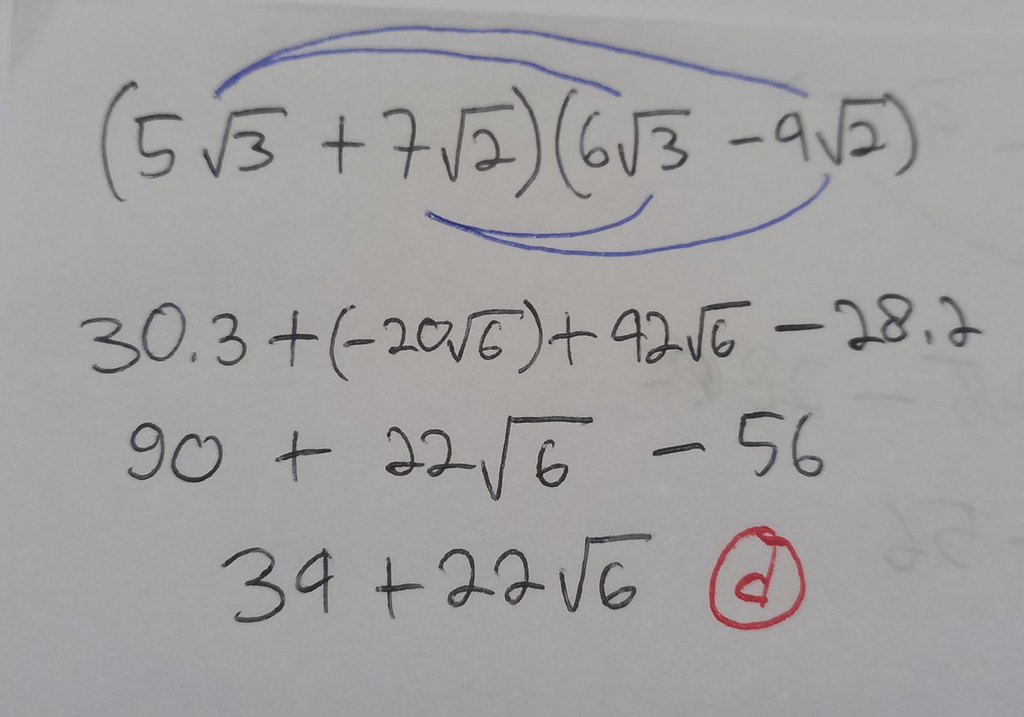 (5√3 + 7√2)(6√3 - 4√2)
30.3 + (-20√6) + 42√6 - 28.2
90 + 22√6 - 56
34 + 22√6 d